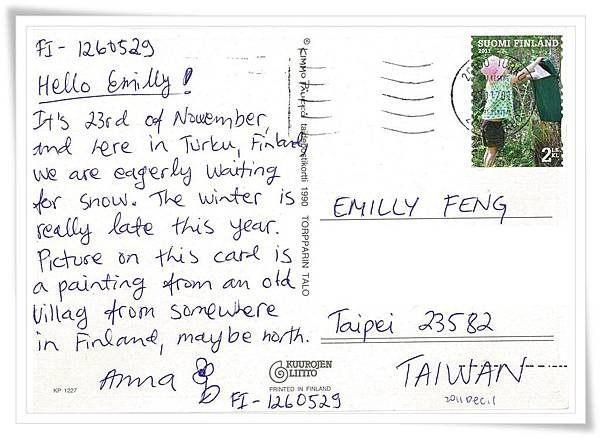 FI-1260529
Hello Emilly!
It's 23rd of November
and here in Turku, Finland
we are eagerly waiting
for snow. The winter is
really late this year.
Picture on this card is
a painting from an old
villag from somewhere
in Finland, maybe north.
Anna
FI-1260529
KP 1227
© KIMMO taidepostikortti 1990 TORPPARIN TALO
KUUROJEN
LIITTO
PRINTED IN FINLAND
SUOMI FINLAND
2011
2 LK
KL
EMILLY FENG
Taipei 23582
TAIWAN
2011 Dec. 1